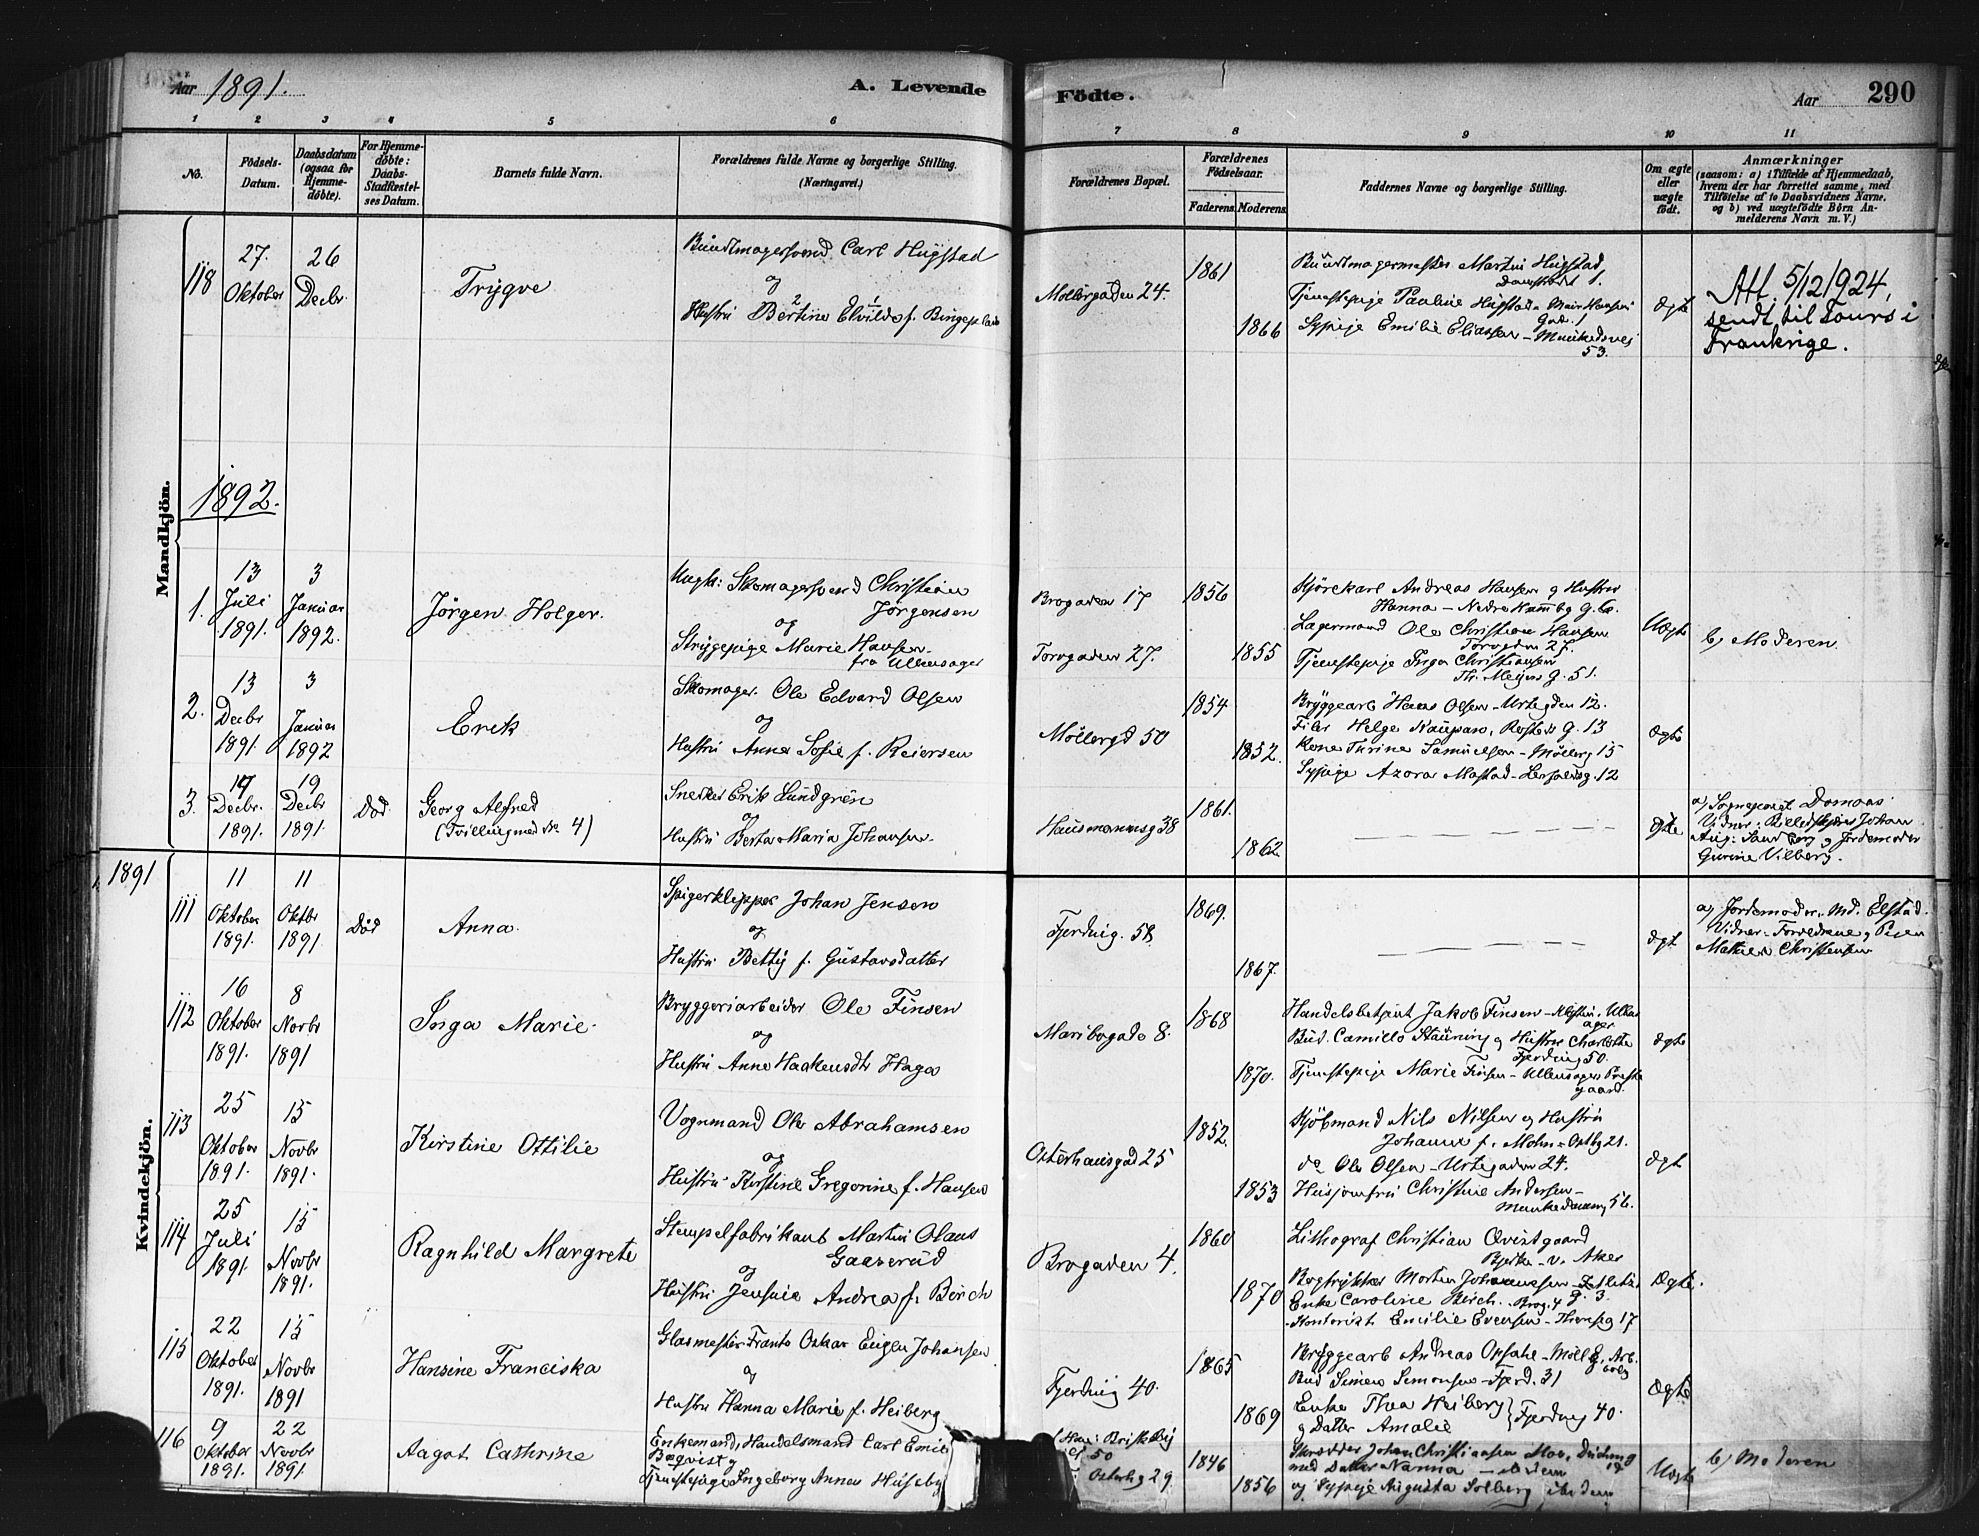 Aar 1891.
A. Levende
Födte.
Aar
290
1 2 3 4 5 6 7 8 9 10 11
No.
Födsels-Datum.
Daabsdatum (ogsaa for Hjemme-döbte).
For Hjemme-döbte: Daabs-Stadfæstel-ses Datum.
Barnets fulde Navn.
Forældrenes fulde Navne og borgerlige Stilling.
(Næringsvei.)
Forældrenes Bopæl.
Forældrenes Födselsaar.
Faderens Moderens
Faddernes Navne og borgerlige Stilling.
Om ægte eller uægte födt.
Anmærkninger
(saasom: a) i Tilfælde af Hjemmedaab,
hvem der har forrettet samme, med
Tilföielse af to Daabsvidners Navne.
og b) ved uægtefödte Börn An-
melderens Navn m. V.)
Mandkjön.
118
27. Oktober
26 Decbr
Trygve
Buntmagersvend Carl Hugstad
og
Hustru Bertine Elvilde f.
Møllergaden 24.
1861
1866
Buntmagermester Martin Hugstad
Tjenestepige Pauline Hugstad
Sypige Emilie Eliassen – Munkedsvej
53.
Ægte
Att. 5/12 1924,
sendt til Tours i
Frankrige.
1892.
1.
13 Juli 1891.
3 Januar 1892.
Jørgen Holger.
Ungk: Skomagersvend Christian
Jörgensen
og
Strygepige Marie Hansen
fra Ullensager
Brogaden 17
Torvgaden 27.
1856
1855
Kjörekarl Andreas Hansen og Hustru
Hanna –
Lagermand Ole Christian Hansen
Torvgden 27.
Tjenestepige Inga Christiansen
Th. Meyers g. 51.
Uægte
b) Moderen
2.
13 Decbr 1891.
3 Januar 1892
Erik
Skomager Ole Edvard Olsen
og
Hustru Anna Sofie f. Reiersen
Møllergd 50
1854
1852.
Bryggearb Hans Olsen – Urtegden 12.
Filer Helge
Kone Turine Samuelsen – Møllerg 15
Sypige Azora
Ægte
3.
19 Decbr. 1891.
19 Decbr 1891.
Död
Georg Alfred
(Tvilling med No 4)
Snedker Erik Lundgrén
og
Hustru Berta Maria Johansen.
Hausmannsg 38
1861.
1862
Ægte
a) Sognepræst
Vidner: Billedskjærer Johan
Aug: Sandberg og Jordemoder
Gurine Vilberg.
1891
Kvindekjön.
111
11 Oktober 1891.
11 Oktbr 1891.
Död
Anna.
Spigerklipper Johan Jensen
og
Hustru Betty f. Gustavsdatter
Fjerding. 58
1869.
1867.
Ægt
a) Jordemoder Md. Elstad.
Vidner: Forældrene og
Christensen
112
16 Oktober 1891.
8 Novbr 1891
Inga Marie.
Bryggeriarbeider Ole Finsen
og
Hustru Anne Haakensdtr Haga
Maribogade 8.
1868
1870.
Handelsbetjent Jakob Finsen –
Bud. Camillo Stäuning og Hustru Charlotte
Fjerding 50.
Tjenestepige Marie Finsen – Ullensagers Præste
gaard.
Ægte
113
25 Oktober 1891.
15 Novbr 1891.
Kirstine Ottilie
Vognmand Ole Abrahamsen
og
Hustru Kirstine Gregorine f. Hansen
Osterhausgad 25
1852.
1853
Kjöbmand Nils Nilsen og Hustru
Johanne f. Mohn – Ostbg 21.
do Ole Olsen – Urtegaden 24.
Husjomfru Christine Andersen –
Munkedamsv 56.
Ægt
114
25 Juli 1891.
15 Novbr 1891.
Ragnhild Margrete
Stempelfabrikant Martin Olaus
Gaaserud
og
Hustru Jensine Andrea f. Börch
Brogaden 4.
1860
1870
Lithograf Christian Qvistgaard
Bjerke – v. Aker
Bogtrykker Morten Johannessen
Enke Caroline Börch. Brog. 4
Kontorist Emilie Evensen – Thorsg 17
Ægte.
115
22 Oktober 1891.
15 Novbr 1891
Hansine Franciska
Glasmester Frants Oskar Eugen Johansen
og
Hustru Hanna Marie f. Heiberg
Fjerding 40.
1865
1869
Bryggearb Andreas Opsahl –
Bud Simen Simonsen – Fjerd. 31
Enke Thea Heiberg
og Datter Amalie } Fjerding 40.
Ægte
116
9 Oktober 1891.
22 Novbr 1891.
Aagot Cathrine
Enkemand, Handelsmand Carl Emil
Bøqvist og
Tjenestepige Ingeborg Anna Huseby
50
Osterhg 29
1846
1856
Skrædder Johan Christiansen
med Datter Nanna – ibidem
og Sypige Augusta Solberg ibidem
Uægte
b) Moderen